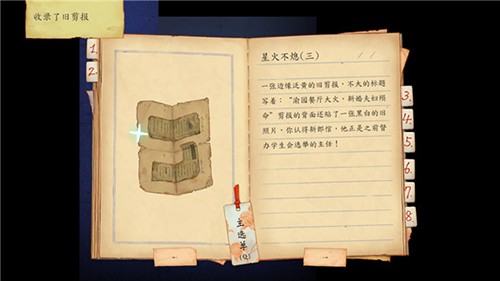 收录了旧剪报
1
2
星火不熄(三)
一张边缘泛黄的旧剪报，不大的标题
写着：“渝园餐厅大火，新婚夫妇殒
命”剪报的背面还贴了一张黑白的旧
照片，你认得新郎馆，他正是之前督
办学生会选举的主任！
3.
4.
5.
6.
7.
8
主选单
(Q)